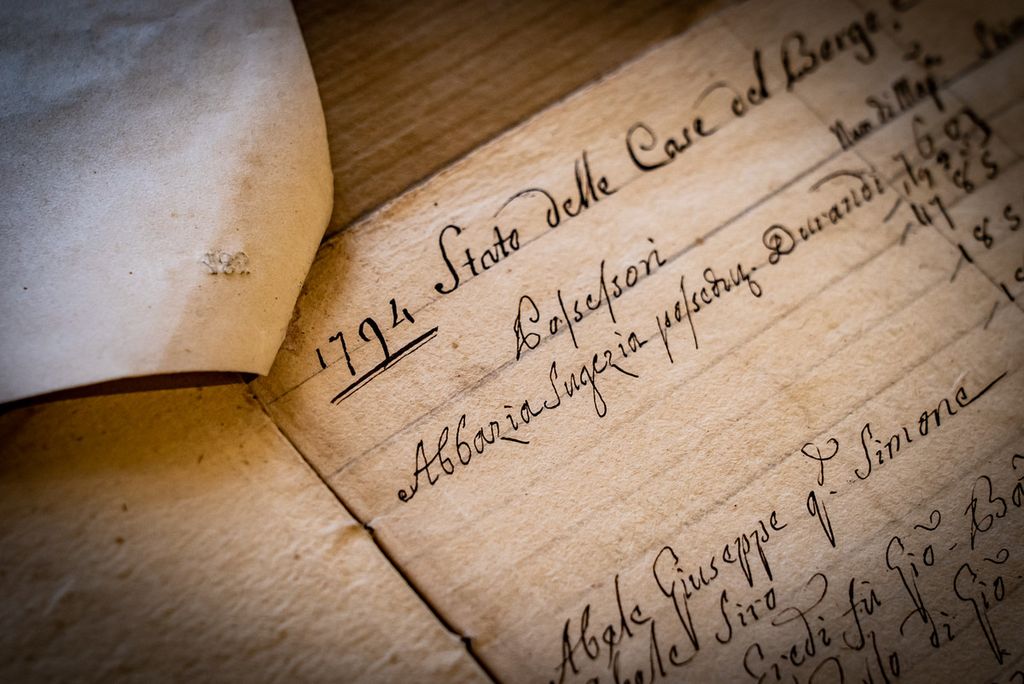 1794 Stato delle Case del Borgo
Possessori Num. di Map
Abbazia Sugezia posseduz. Durandi 76
192.83
47 85
185
Abele Giuseppe q. Simone
Abele Siro
Eredi fù Giõ. Ba
di Giõ.